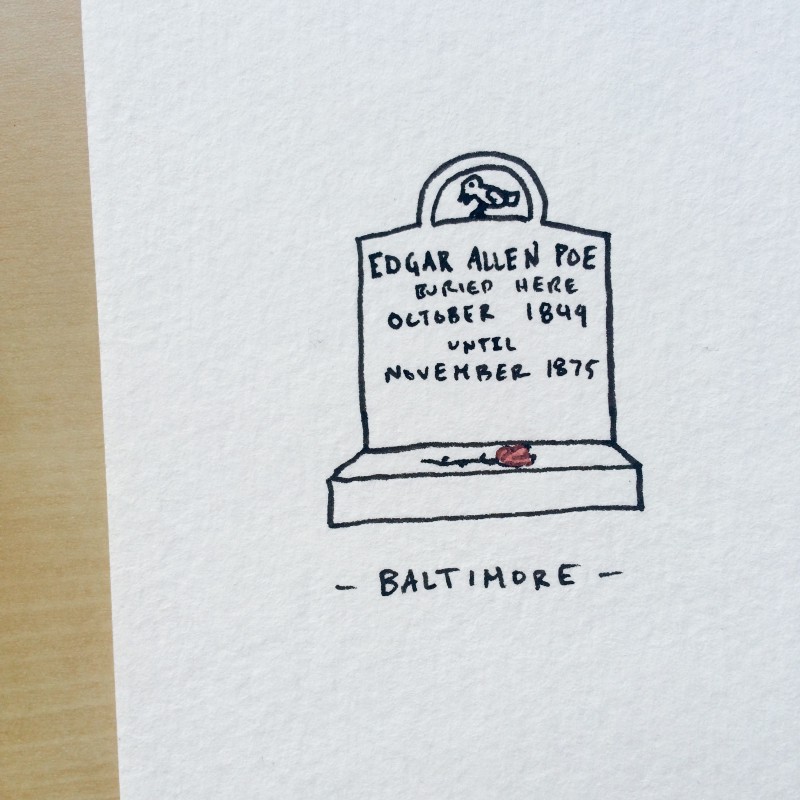 EDGAR ALLEN POE
BURIED HERE
OCTOBER 1849
UNTIL
NOVEMBER 1875
- BALTIMORE -